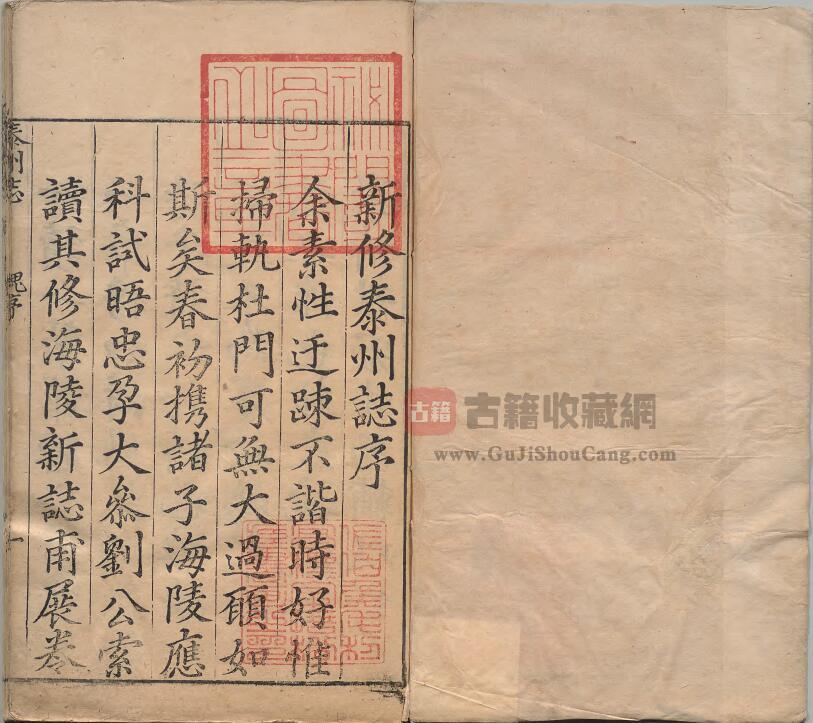 新修泰州誌序
余素性迂踈不諧時好惟
掃軌杜門可無大過頋如
斯矣春初攜諸子海陵應
科試晤忠孕大叅劉公索
讀其修海陵新誌甫展卷
泰州誌
序
一
古籍
古籍收藏網
www.GuJiShouCang.com